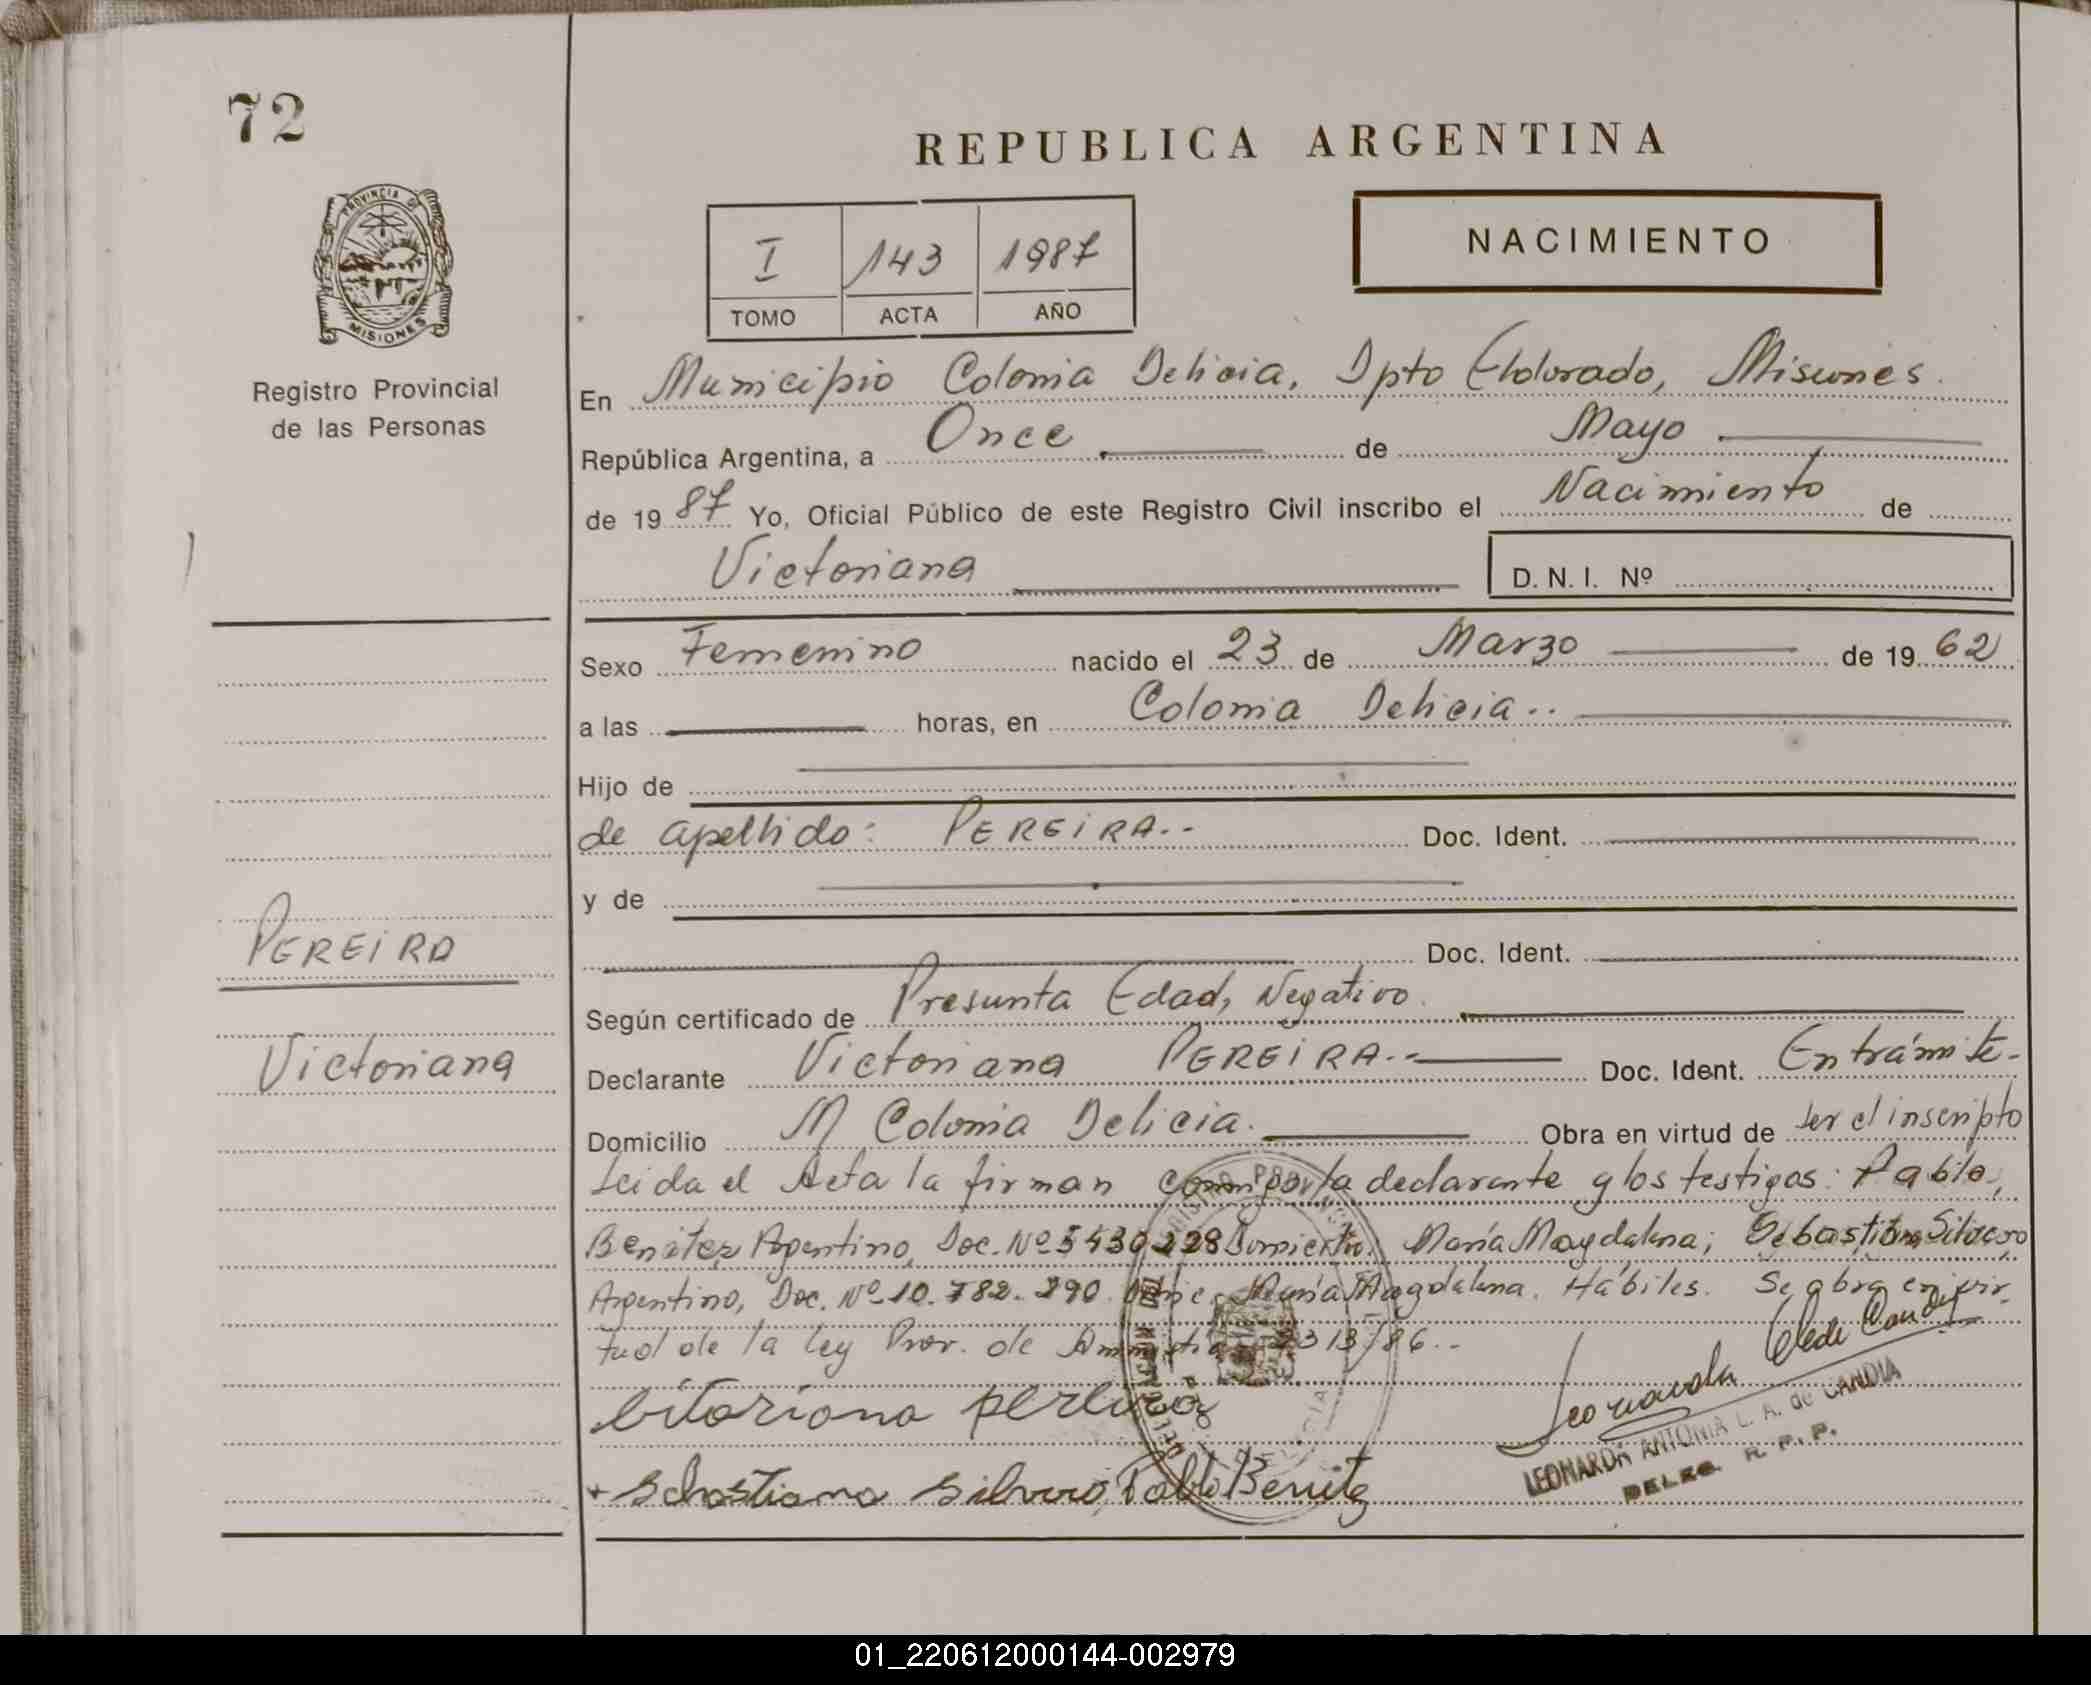 72
REPUBLICA ARGENTINA
PROVINCIA DE
MISIONES
Registro Provincial
de las Personas
I 143 1987
TOMO ACTA AÑO
NACIMIENTO
En Municipio Colonia Delicia, Dpto Eldorado, Misiones.
República Argentina, a Once de Mayo
de 1987 Yo, Oficial Público de este Registro Civil inscribo el Nacimiento de
Victoriana D. N. I. Nº
Sexo Femenino nacido el 23 de Marzo de 1962
a las horas, en Colonia Delicia..
Hijo de
de apellido: PEREiRA.. Doc. Ident.
y de
Doc. Ident.
PEREiRA
Victoriana
Según certificado de Presunta Edad, Negativo.
Declarante Victoriana PEREiRA.. Doc. Ident. Entrámite.
Domicilio M Colonia Delicia. Obra en virtud de ser el inscripto
Leida el Acta la firman la declarante y los testigos: Pablo,
Benitez Argentino, Doc. Nº 5430228 María Magdalena; Sebastiana Silvero
Argentino, Doc. Nº 10.782.290 María Magdalena. Hábiles. Se obra en vir
tud de la Ley Prov. de Amnistia 2313/86..
bitoriana pereira
Sebastiana Silvero Pablo Benitez
LEONARDA ANTONIA L. A. de CANDIA
DELEG. R. P. P.
01_220612000144-002979